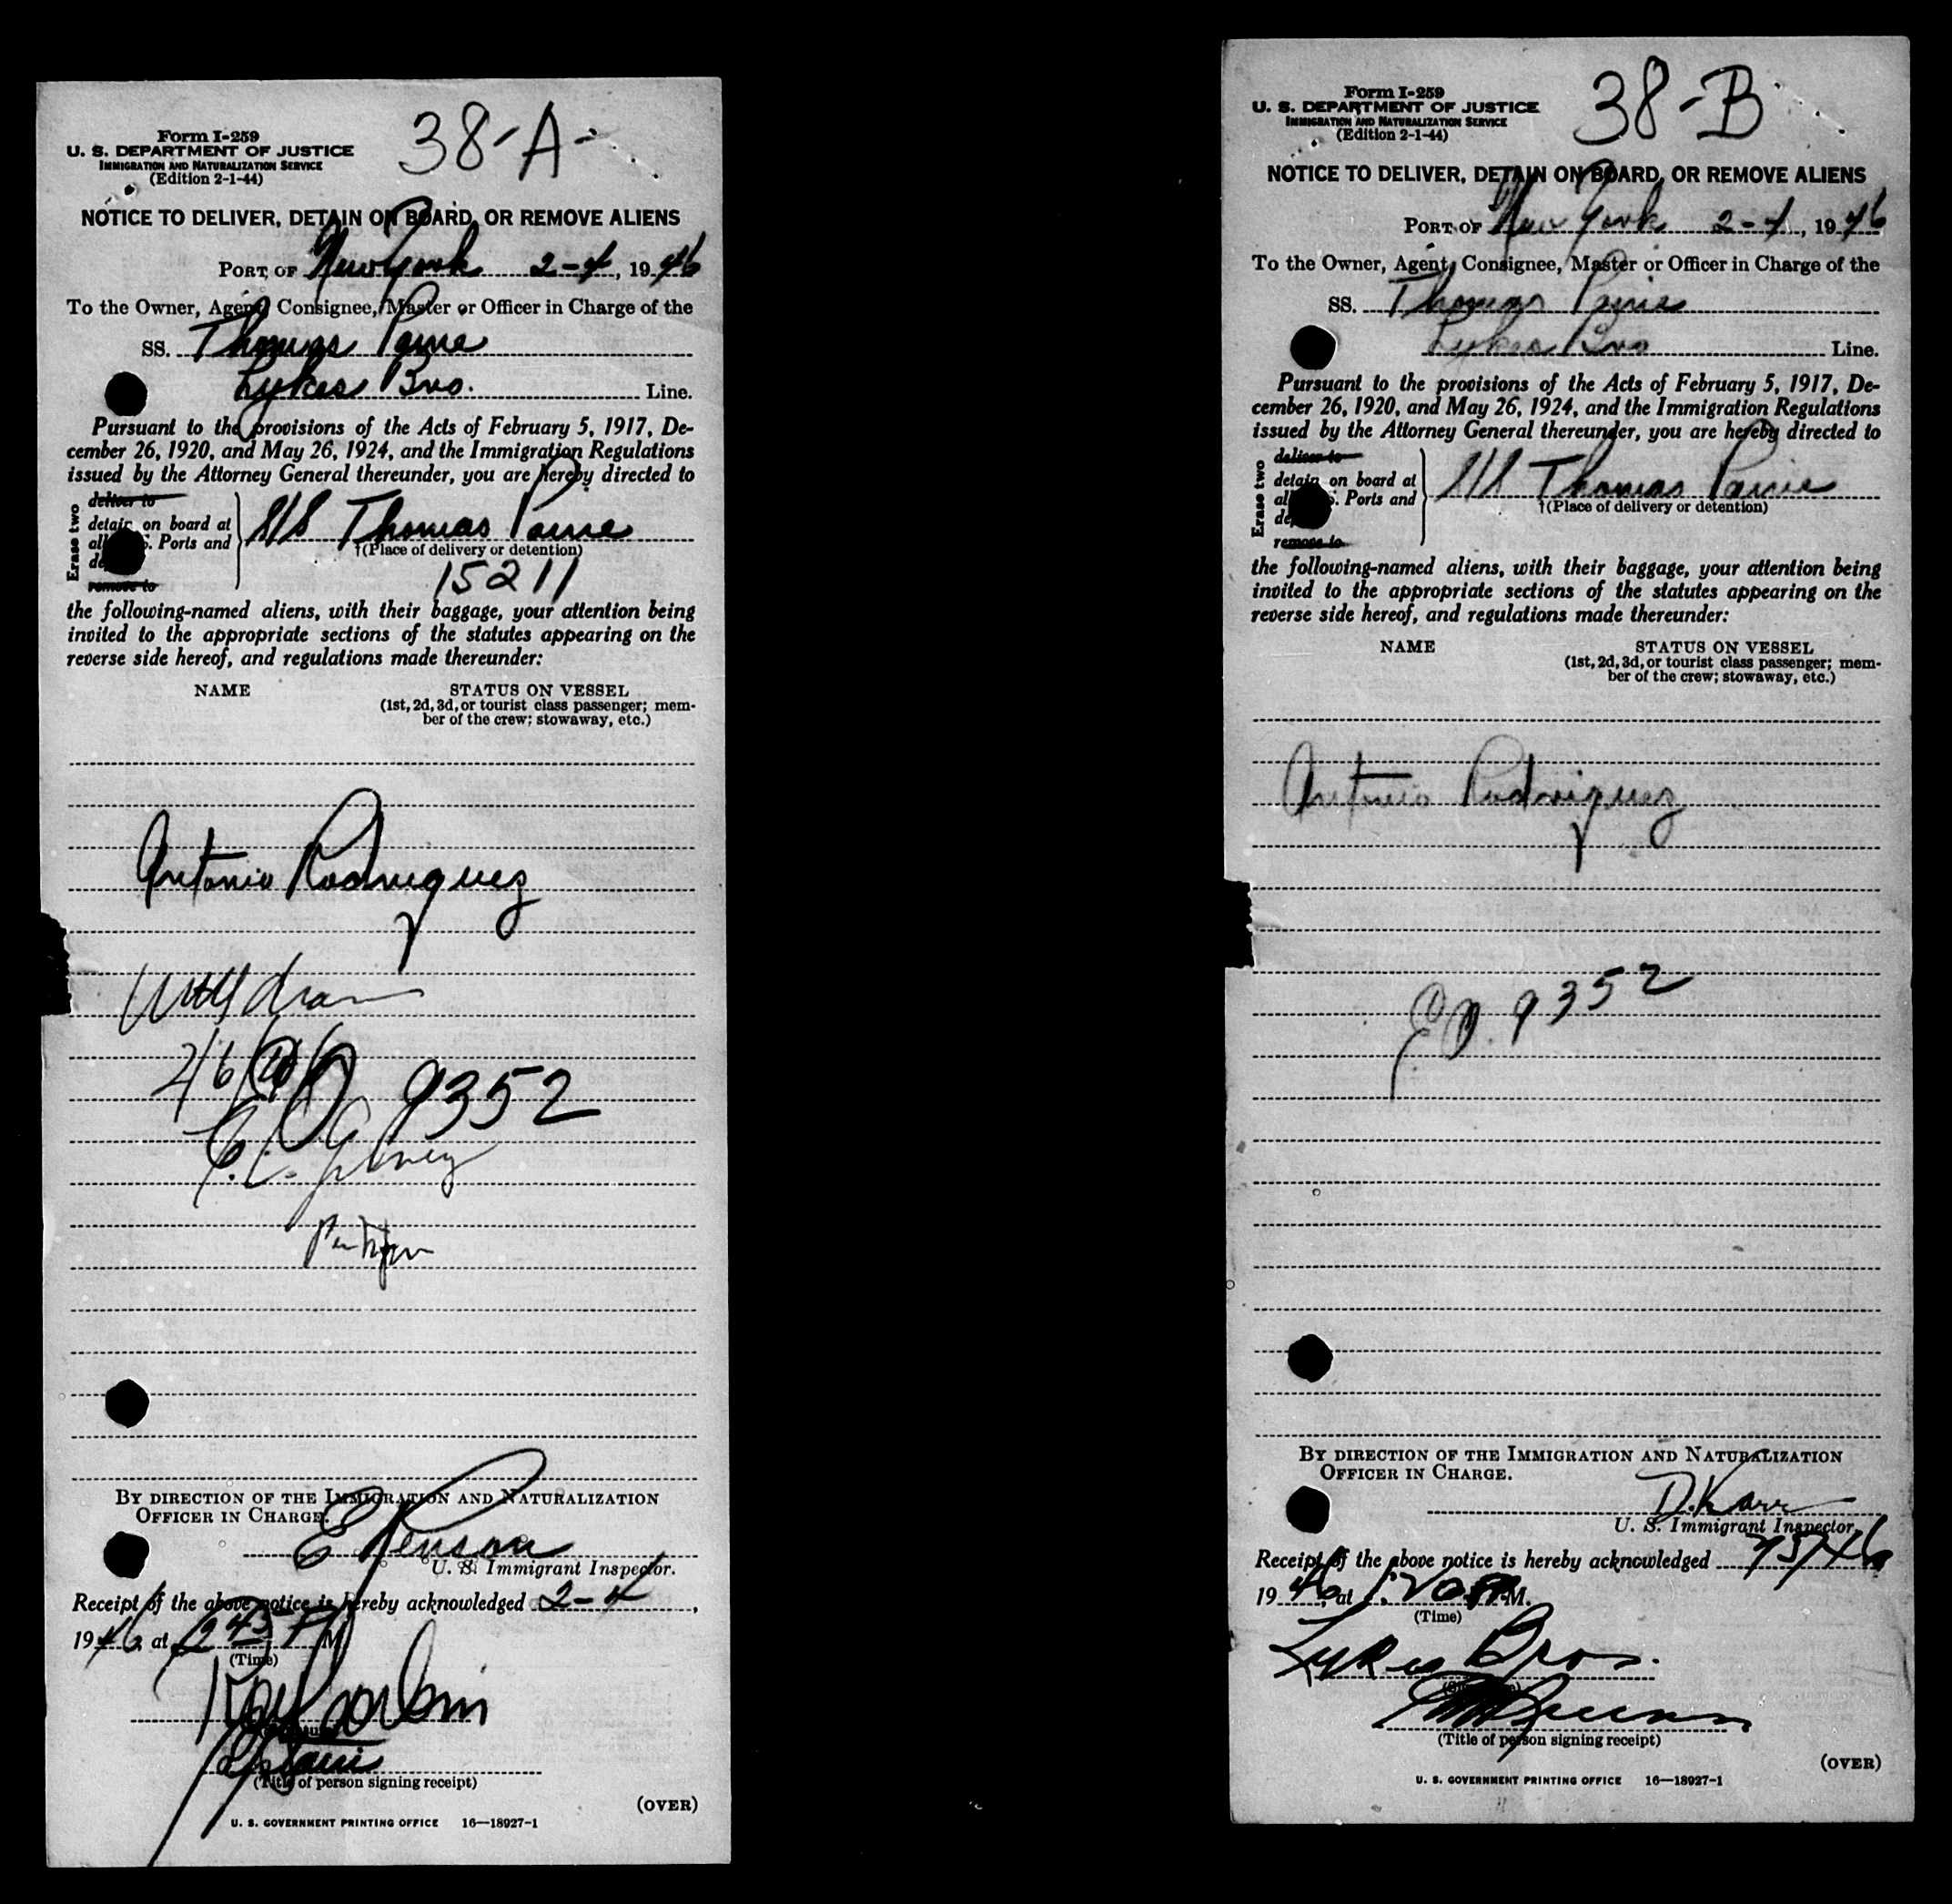 38-A-
Form I-259
U. S. DEPARTMENT OF JUSTICE
IMMIGRATION AND NATURALIZATION SERVICE
(Edition 2-1-44)
NOTICE TO DELIVER, DETAIN ON BOARD, OR REMOVE ALIENS
PORT OF New York 2-4, 1946
To the Owner, Agent, Consignee, Master or Officer in Charge of the
SS. Thomas Paine
Lykes Bro. Line.
Pursuant to the provisions of the Acts of February 5, 1917, De-
cember 26, 1920, and May 26, 1924, and the Immigration Regulations
issued by the Attorney General thereunder, you are hereby directed to
Erase two
deliver to
detain on board at S/S Thomas Paine
Ports and
†(Place of delivery or detention)
remove to
15211
the following-named aliens, with their baggage, your attention being
invited to the appropriate sections of the statutes appearing on the
reverse side hereof, and regulations made thereunder:
NAME STATUS ON VESSEL
(1st, 2d, 3d, or tourist class passenger; mem-
ber of the crew; stowaway, etc.)
Antonio Rodriquez
2/6
9352
BY DIRECTION OF THE IMMIGRATION AND NATURALIZATION
OFFICER IN CHARGE.
E Penson
U. S. Immigrant Inspector.
Receipt of the above notice is hereby acknowledged 2-4,
1946, at 245 P M.
(Time)
Captain
(Title of person signing receipt)
(OVER)
U. S. GOVERNMENT PRINTING OFFICE 16—18927-1
38-B
Form I-259
U. S. DEPARTMENT OF JUSTICE
IMMIGRATION AND NATURALIZATION SERVICE
(Edition 2-1-44)
NOTICE TO DELIVER, DETAIN ON BOARD, OR REMOVE ALIENS
PORT OF New York 2-4, 1946
To the Owner, Agent, Consignee, Master or Officer in Charge of the
SS. Thomas Paine
Lykes Bro Line.
Pursuant to the provisions of the Acts of February 5, 1917, De-
cember 26, 1920, and May 26, 1924, and the Immigration Regulations
issued by the Attorney General thereunder, you are hereby directed to
Erase two
deliver to
detain on board at S/S Thomas Paine
Ports and
†(Place of delivery or detention)
remove to
the following-named aliens, with their baggage, your attention being
invited to the appropriate sections of the statutes appearing on the
reverse side hereof, and regulations made thereunder:
NAME STATUS ON VESSEL
(1st, 2d, 3d, or tourist class passenger; mem-
ber of the crew; stowaway, etc.)
Antonio Rodriquez
9352
BY DIRECTION OF THE IMMIGRATION AND NATURALIZATION
OFFICER IN CHARGE.
D. Karr
U. S. Immigrant Inspector.
Receipt of the above notice is hereby acknowledged
1946, at M.
(Time)
Lykes Bros.
(Title of person signing receipt)
(OVER)
U. S. GOVERNMENT PRINTING OFFICE 16—18927-1